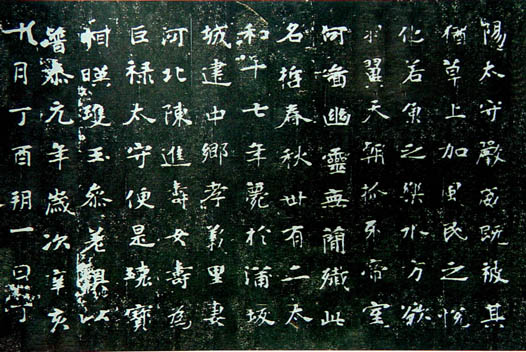 陽太守嚴威既被其
猶草上加風民之悅
化若魚之樂水方欲
羽翼天朝抓牙帝室
何啚幽靈無簡殲此
名哲春秋卅有二太
和十七年薨於蒲坂
城建中鄉孝義里妻
河北陳進壽女壽為
巨祿太守便是瓌寶
相暎瓊玉參差俱以
普泰元年歲次辛亥
十月丁酉朔一日丁